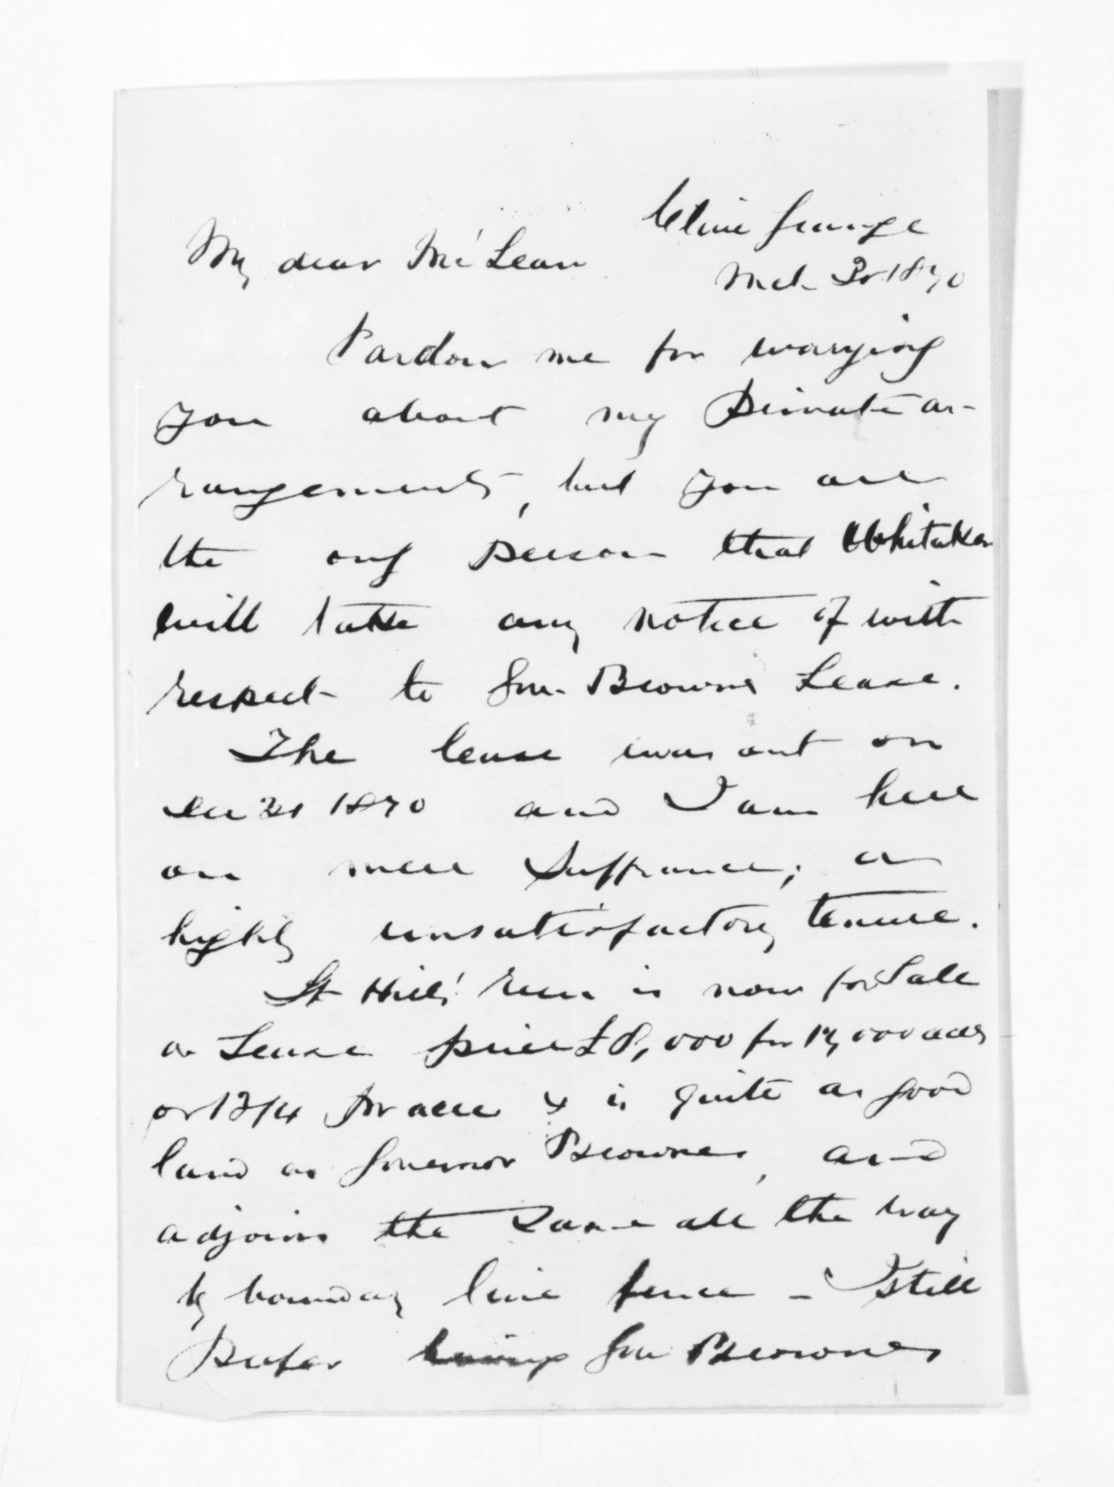 Clive Grange
My dear McLean
Mch 3r 1870
Pardon me for worrying
you about my private ar-
rangements, but you are
the only person that Whitaker
will take any notice of with
respect to Gov. Brownes Lease.
The lease was out on
Dec 31 1870 and I am here
on mere suffrance; a
highly unsatisfactory tenure.
St Hills' run is now for Sale
or Lease price £8,000 for 12,000 acres
or 13/4 pr acre & is quite as good
land as Governor Brownes, and
adjoins the same all the way
by boundary line fence - I still
prefer Gov Brownes